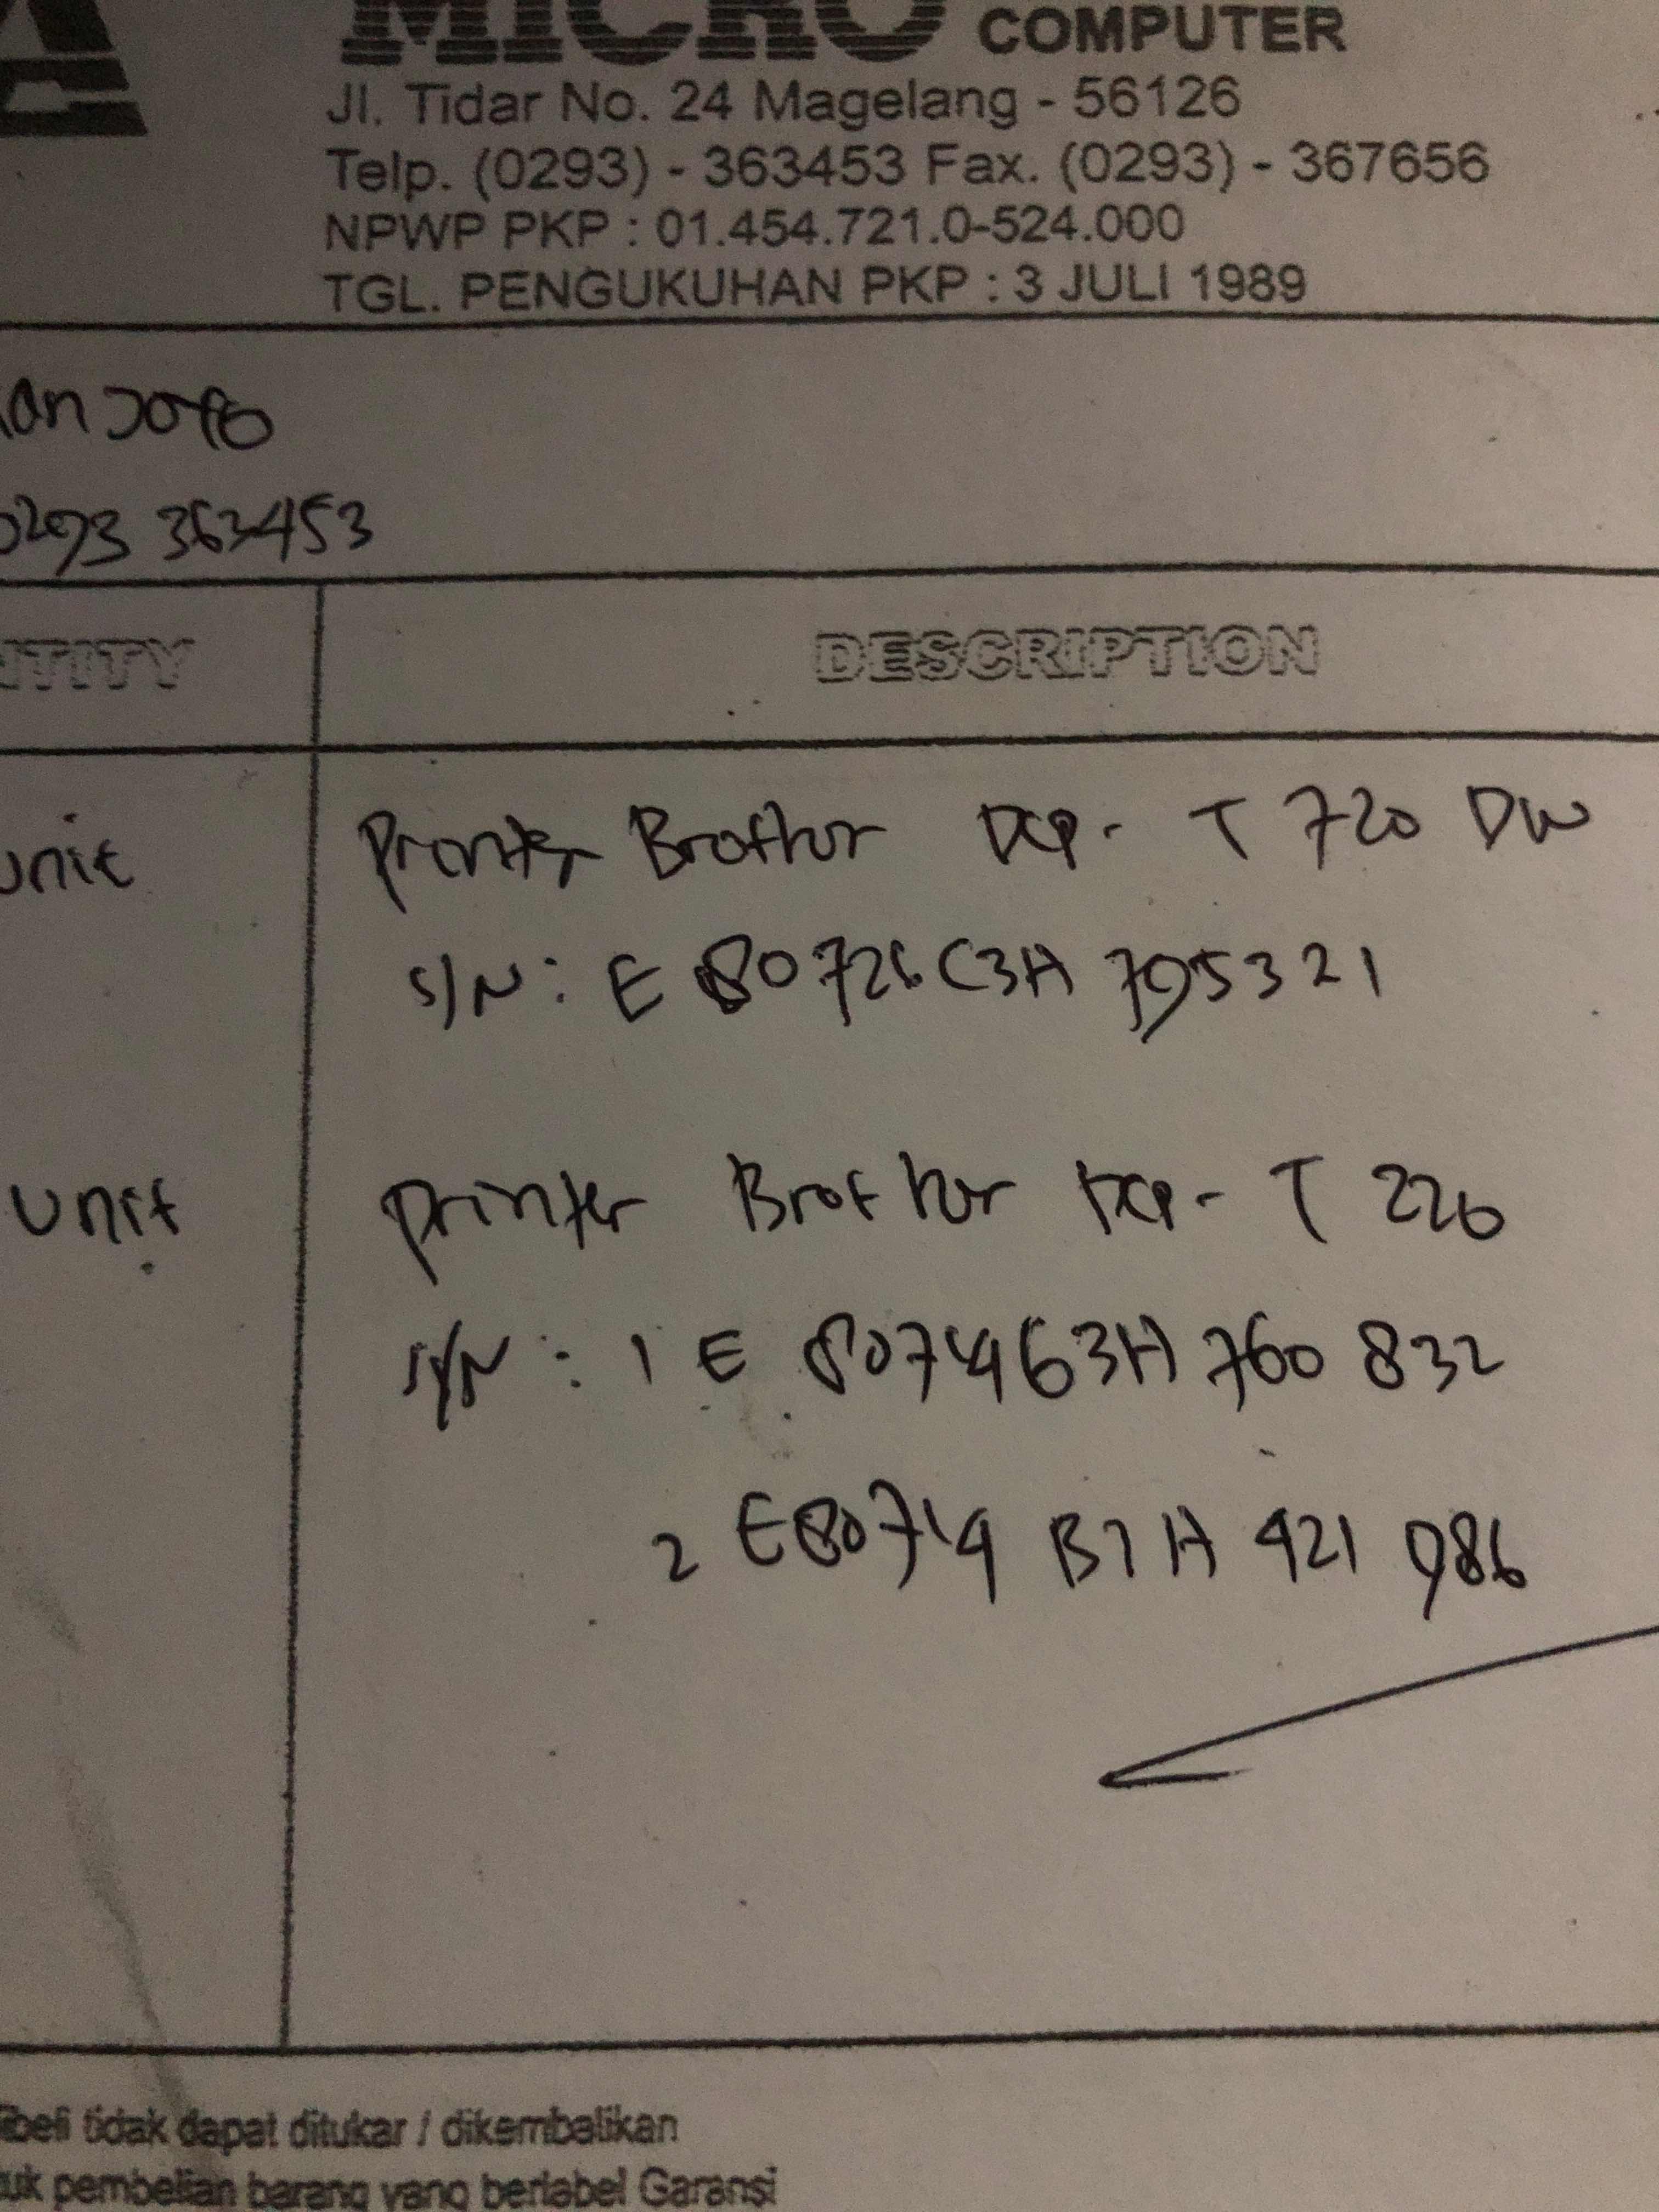 MICRO COMPUTER
Jl. Tidar No. 24 Magelang - 56126
Telp. (0293) - 363453 Fax. (0293) - 367656
NPWP PKP : 01.454.721.0-524.000
TGL. PENGUKUHAN PKP : 3 JULI 1989
0293 363453
NTITY DESCRIPTION
unit Printer Brother DCP- T 720 DW
S/N : E 80726C3H 795321
unit Printer Brother DCP- T 226
S/N : 1 E 807463H 760 832
2 E80714 B7H 421 986
ibeli tidak dapat ditukar / dikembalikan
uk pembelian barang yang berlabel Garansi